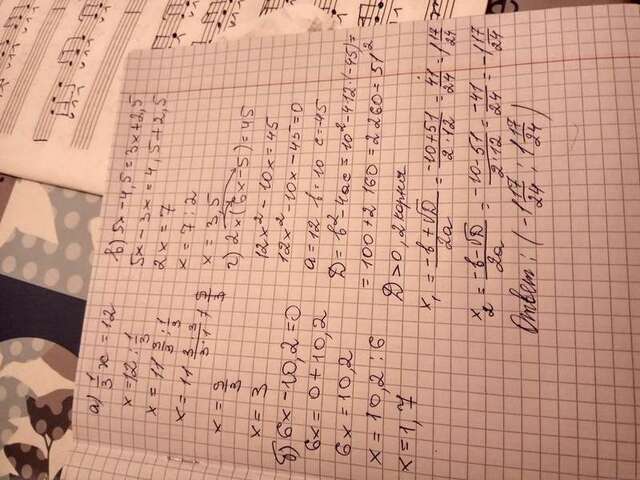 а) 1/3 x = 12
x = 12 : 1/3
x = 11 3/3 : 1/3
x = 11
x = 9/3
x = 3
б) 6x - 10,2 = 0
6x = 0 + 10,2
6x = 10,2
x = 10,2 : 6
x = 1,7
в) 5x - 4,5 = 3x + 2,5
5x - 3x = 4,5 + 2,5
2x = 7
x = 7 : 2
x = 3,5
г) 2x(6x - 5) = 45
12x² - 10x = 45
12x² - 10x - 45 = 0
a = 12 b = 10 c = -45
D = b² - 4ac = 10² - 4·12·(-45) =
= 100 + 2160 = 2260 = 51²
D > 0, 2 корня
x₁ = -b + √D / 2a = -10 + 51 / 2·12 = 41/24 = 1 17/24
x₂ = -b - √D / 2a = -10 - 51 / 2·12 = -41/24 = -1 17/24
Ответ: (-1 17/24 ; 1 17/24)